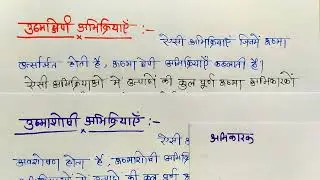 उष्माक्षेपी अभिक्रियाएँ :-
ऐसी अभिक्रियाएँ जिनमें ऊष्मा
उत्सर्जित होती है, ऊष्माक्षेपी अभिक्रियाएँ कहलाती हैं।
ऐसी अभिक्रियाओं में उत्पादों की कुल पूर्ण ऊष्मा अभिकारकों
उष्माशोषी अभिक्रियाएँ :-
ऐसी अभि
अभिकारक
अवशोषण होता है, ऊष्माशोषी अभिक्रि
ऐसी अभिक्रियाओं में उत्पादों की कुल पूर्ण ऊष्मा